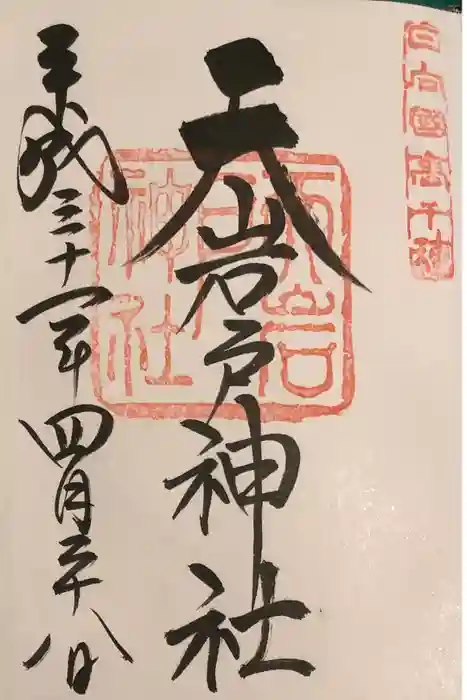 日向國高千穂
天岩戸神社
天岩
戸
神社
平成三十一年四月二十八日